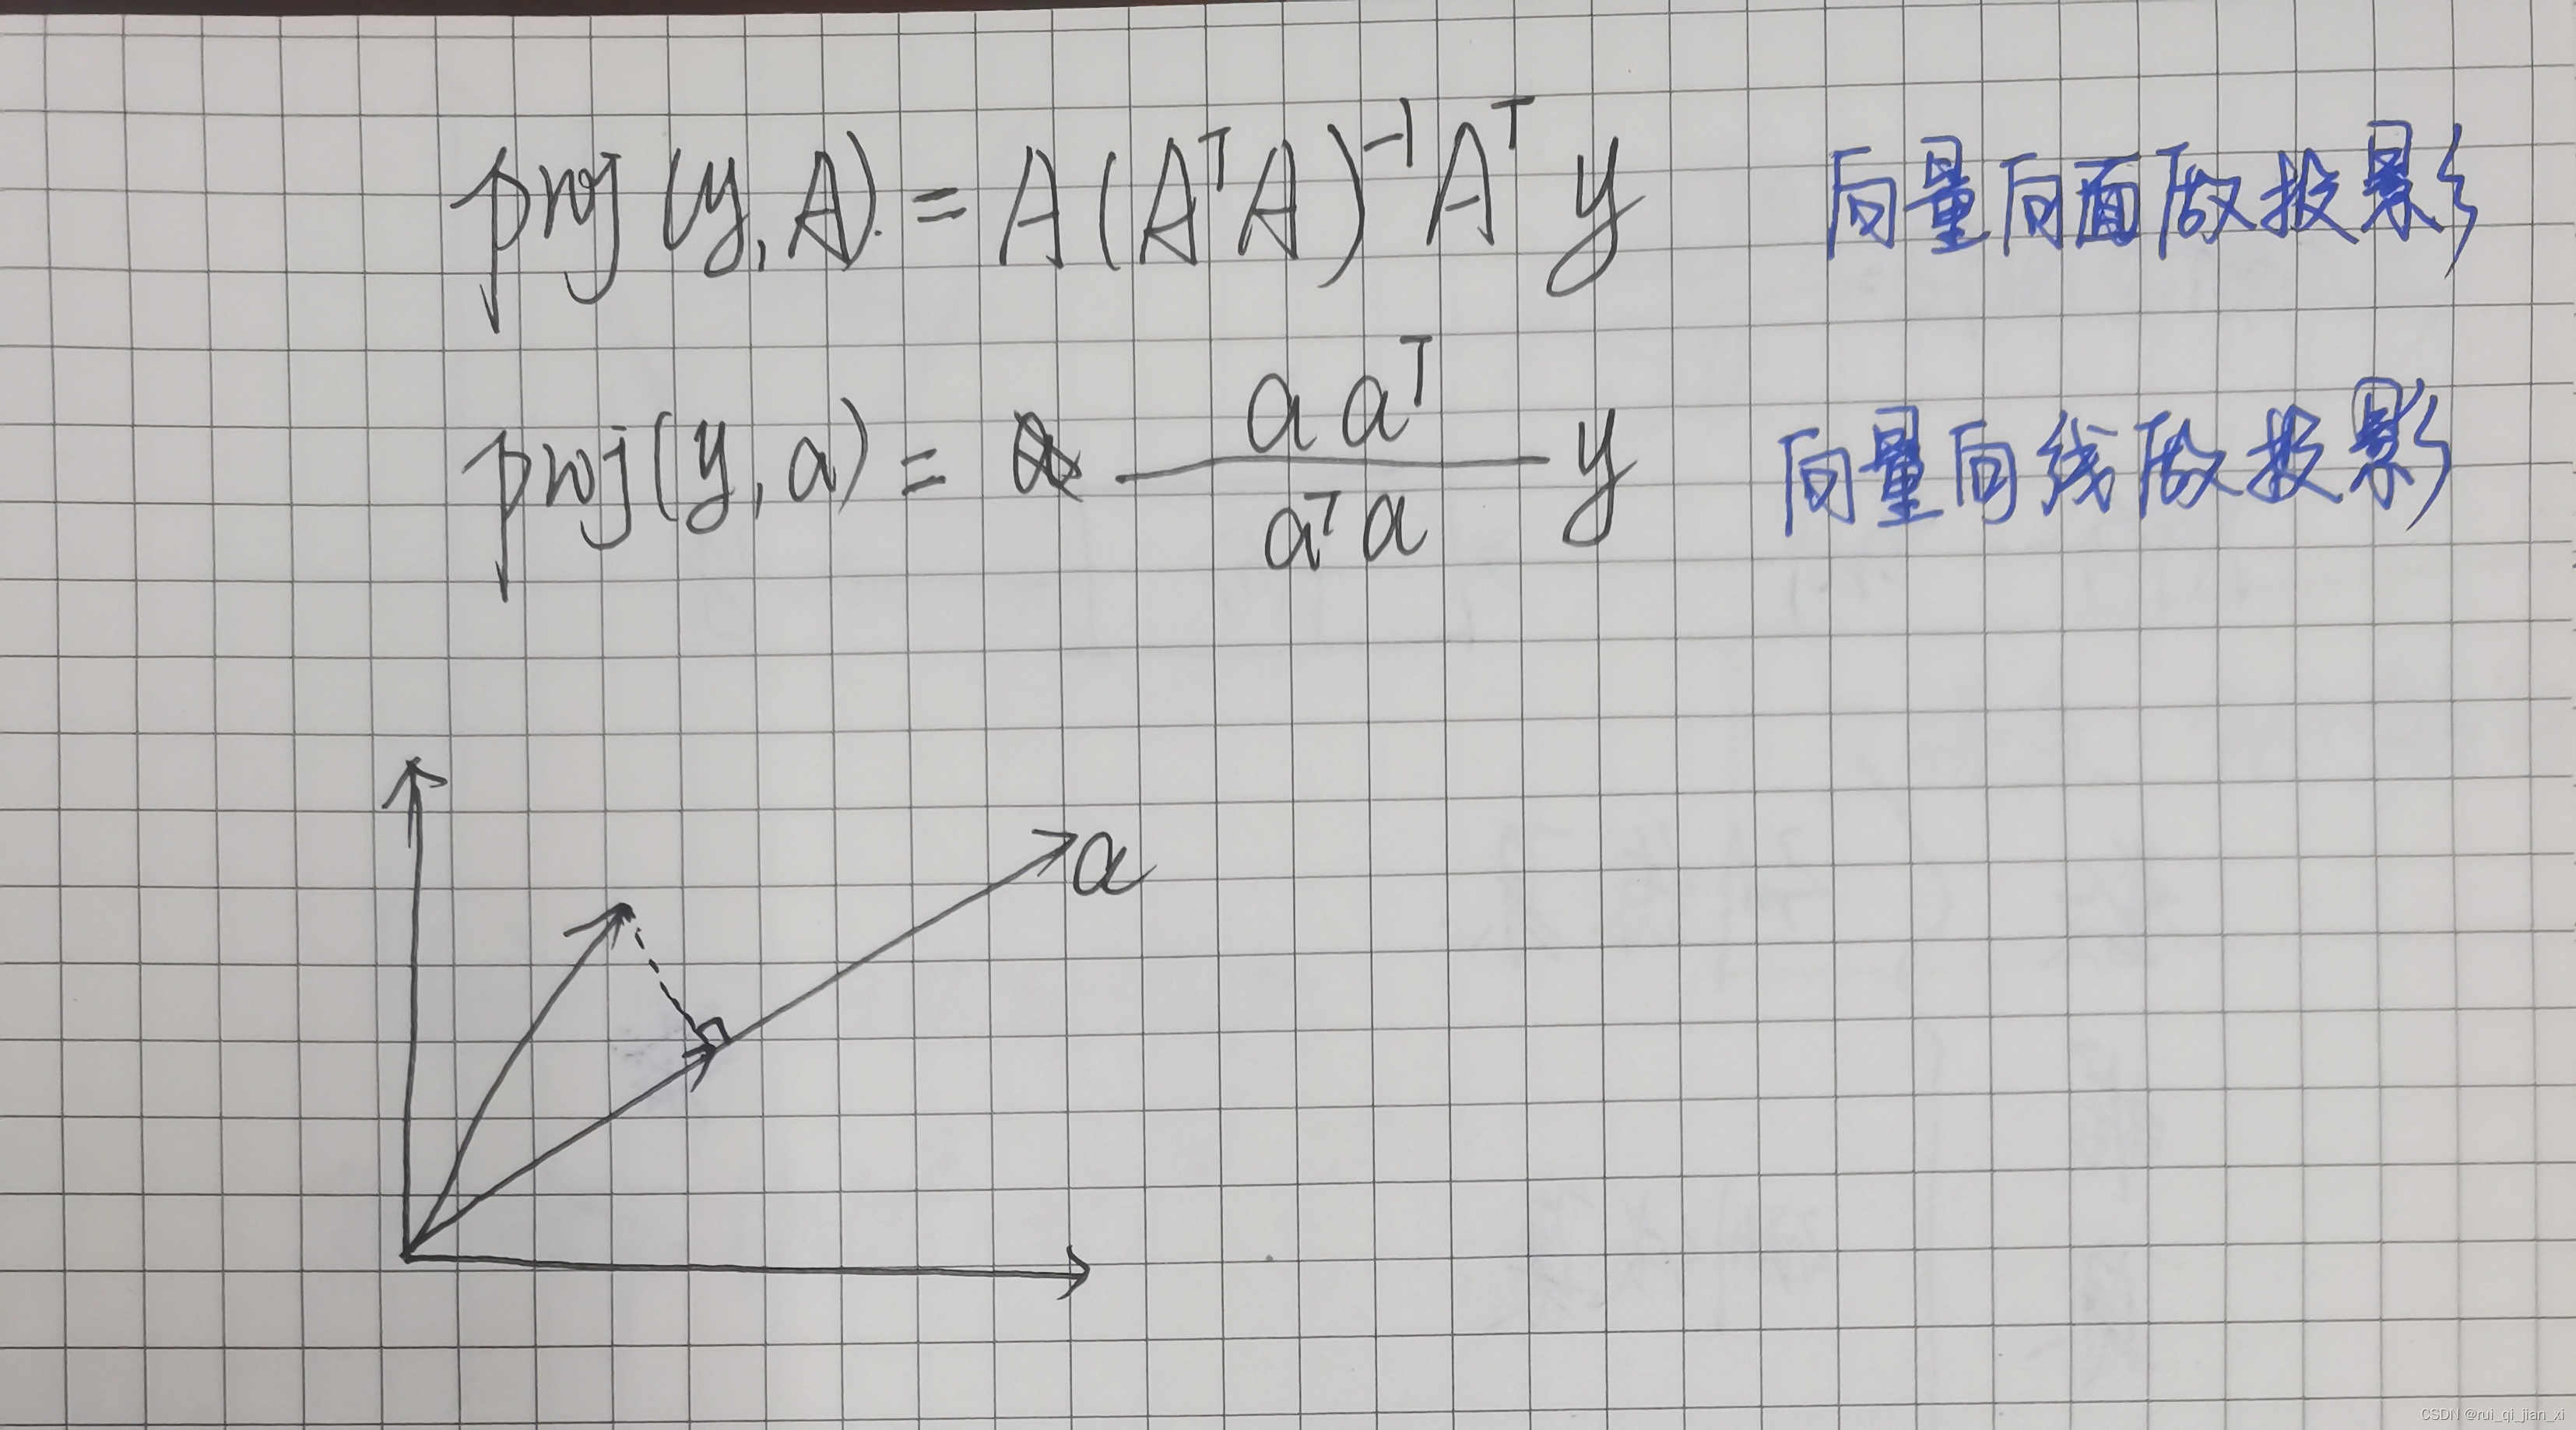 proj (y, A). = A(AᵀA)⁻¹Aᵀ y 向量向面做投影
proj(y, a) = \frac{a aᵀ}{aᵀa} y 向量向线做投影
a
CSDN @rui_qi_jian_xi